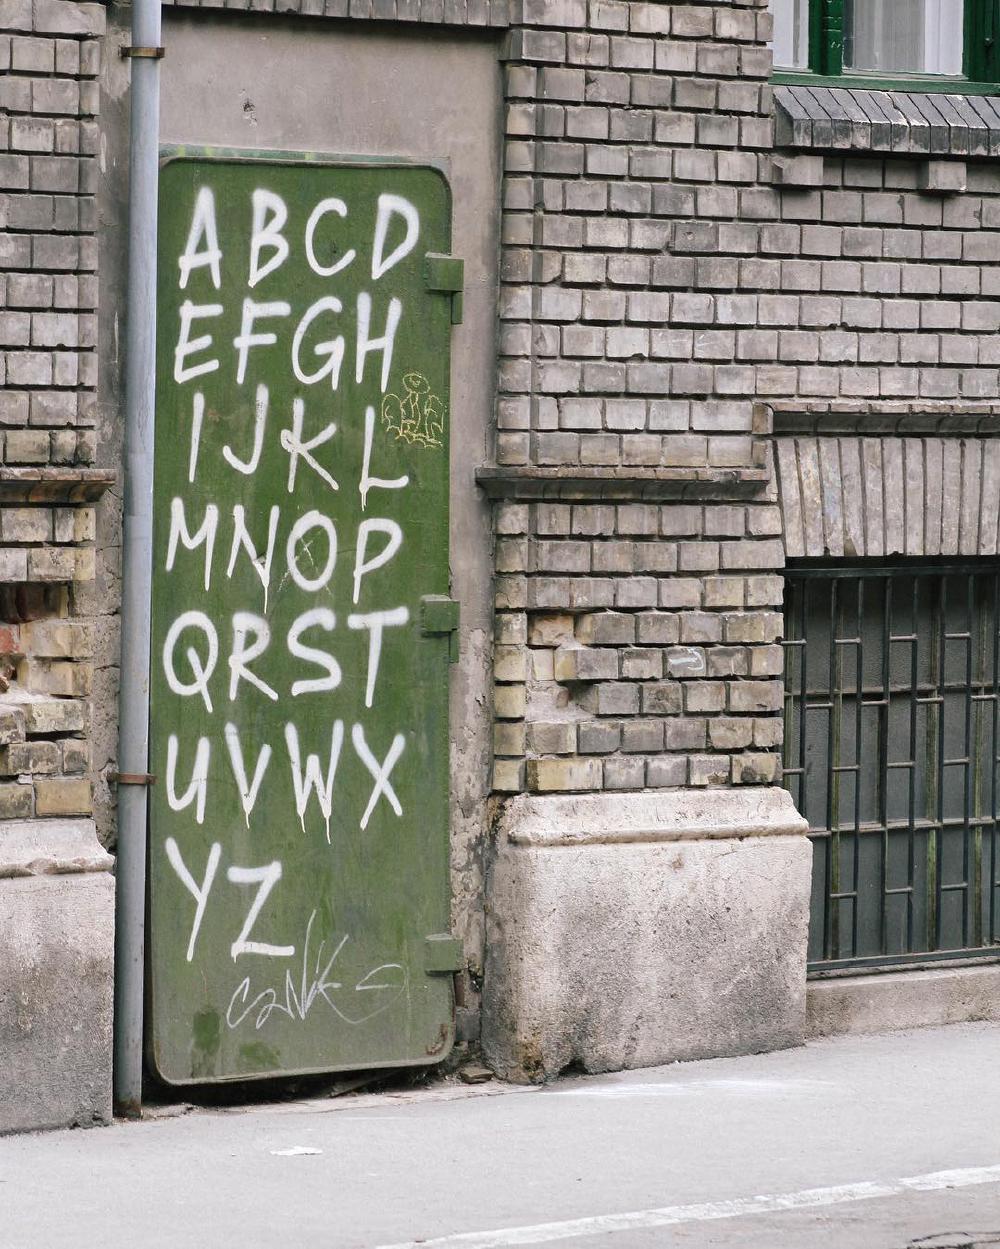 ABCD
EFGH
IJKL
MNOP
QRST
UVWX
YZ